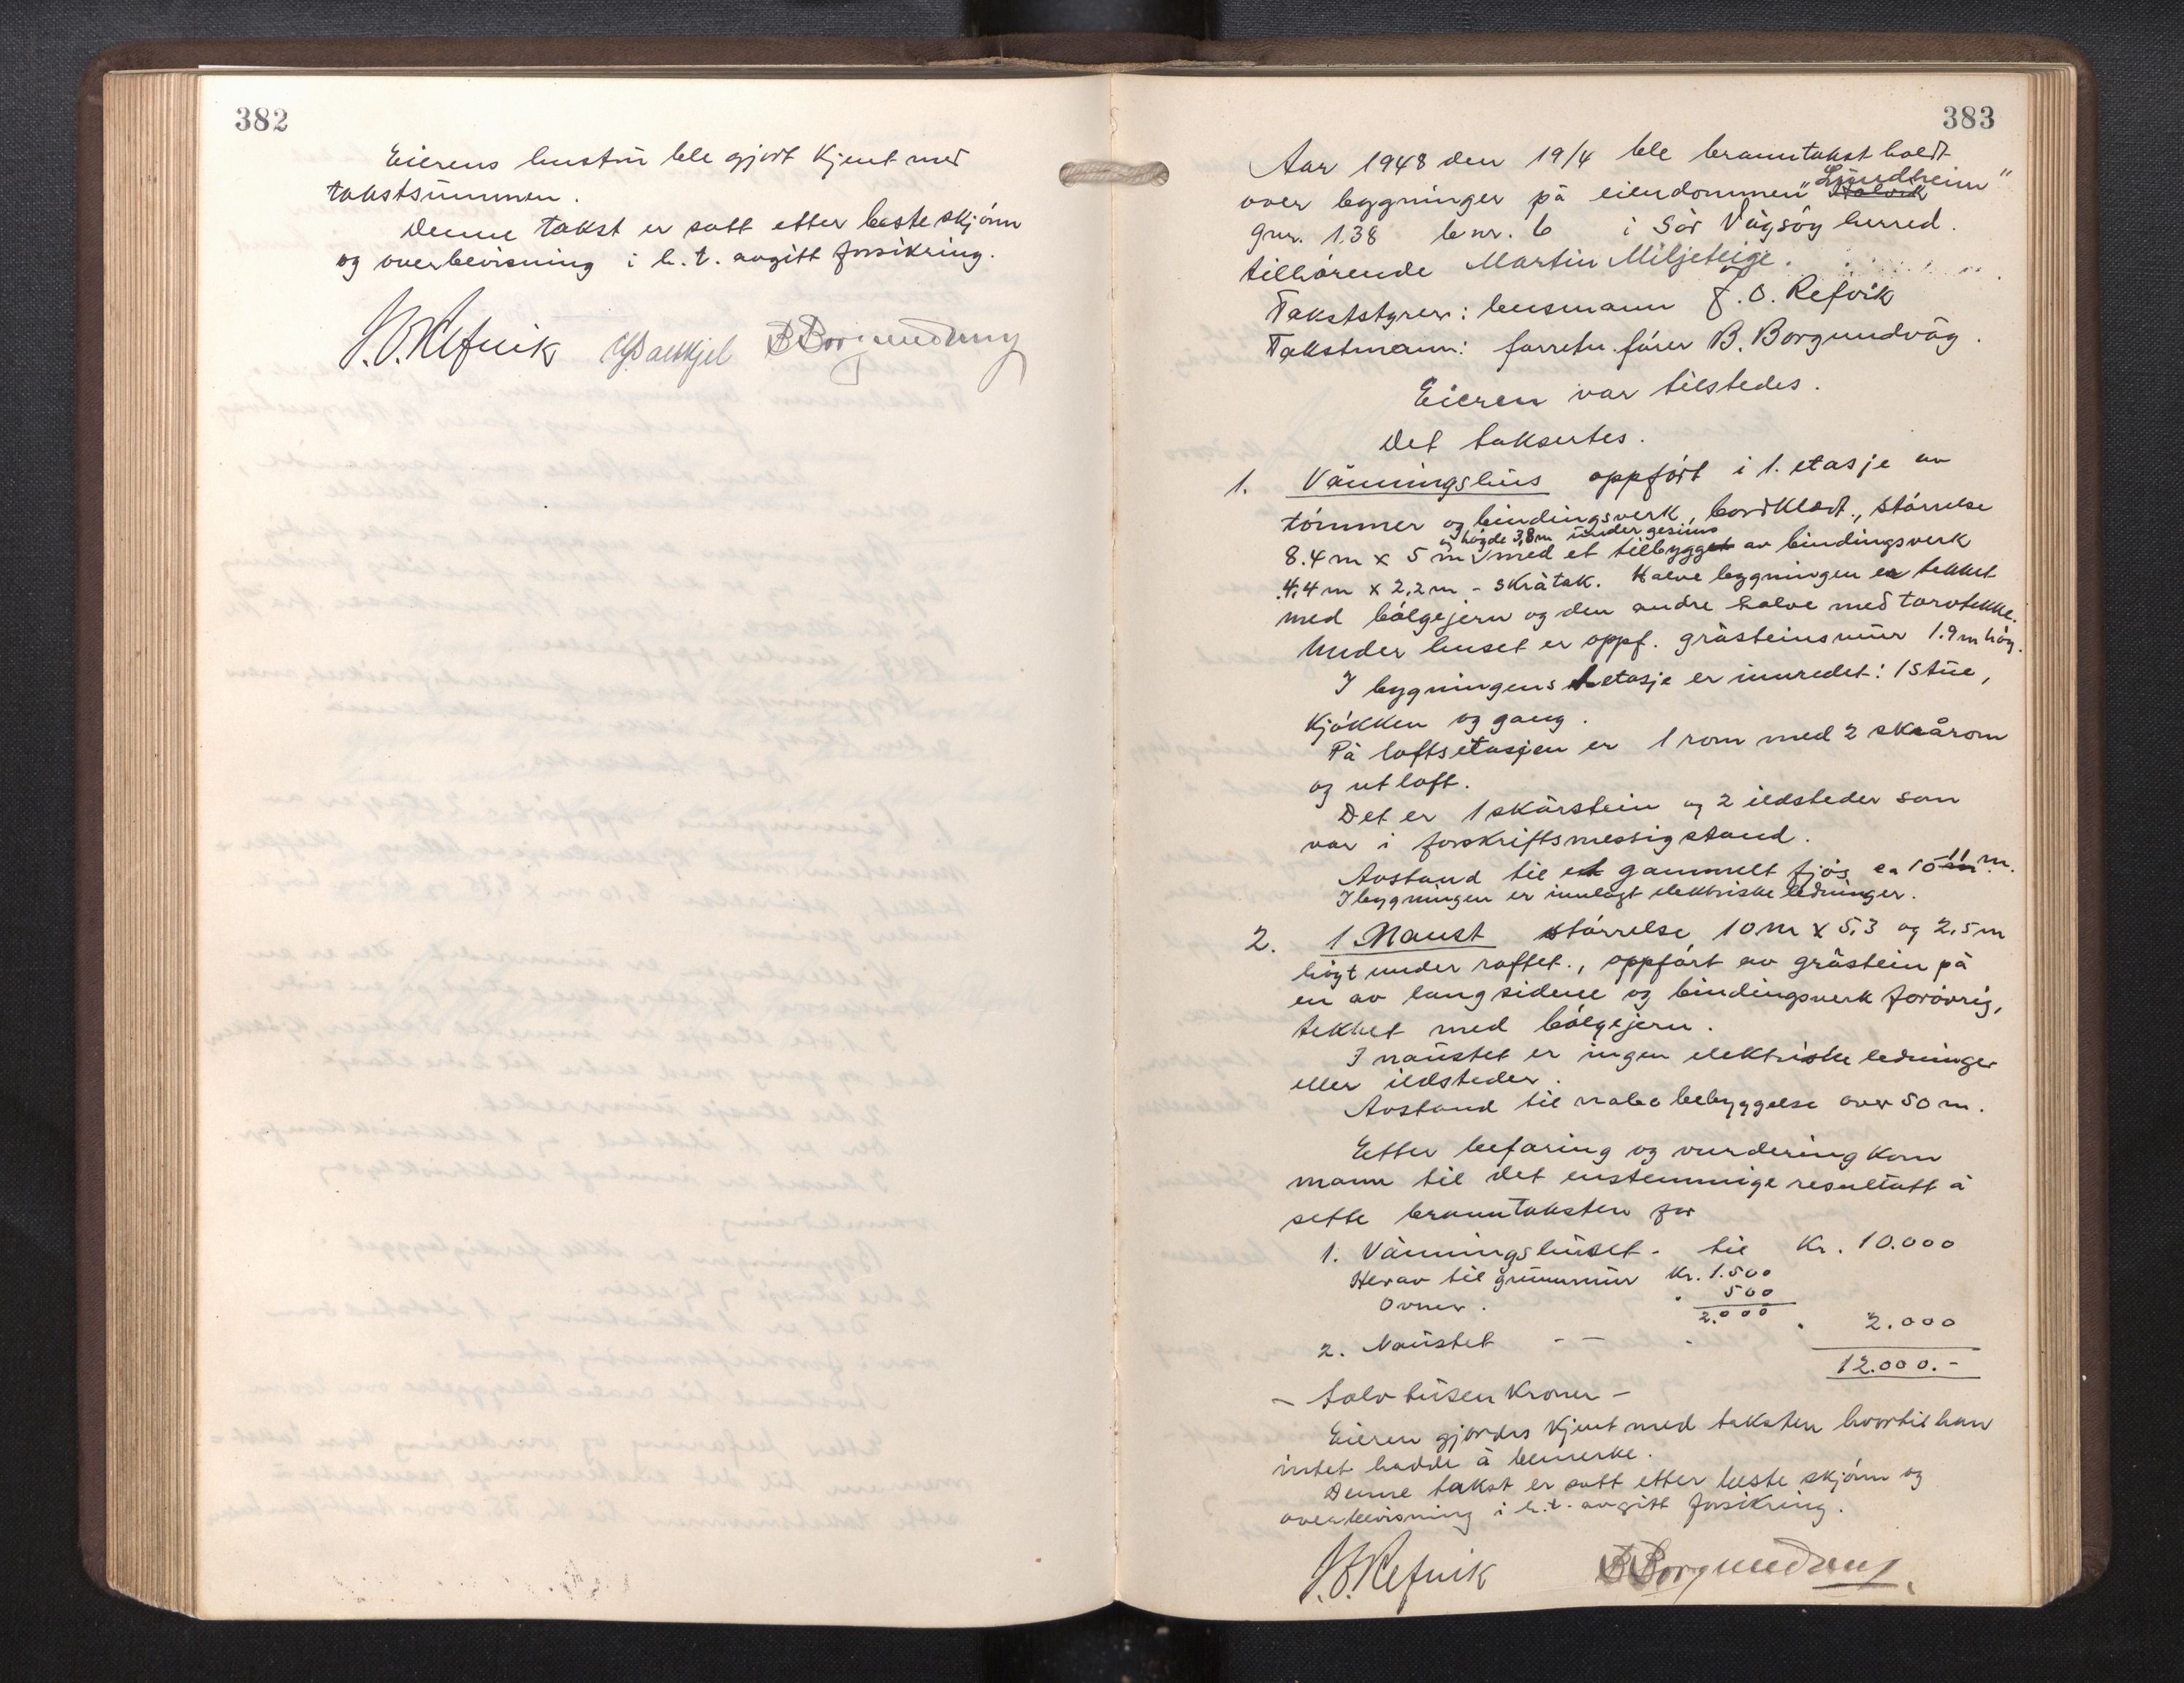 382
Eierens hustru ble gjort kjent med
takstsummen.
Denne takst er satt etter beste skjønn
og overbevisning i h.t. avgitt forsikring.
J. O. Refvik B Borgundvaag
383
Aar 1948 den 19/4 ble branntakst holdt
over bygninger på eiendommen "Halvik Lyndheim"
gnr. 138 bnr. 6 i Sör Vågsöy herred.
tilhörende Martin Miljeteige.
Takststyrer: lensmann J. O. Refvik
Takstmann: forretn. förer B. Borgundvåg.
Eieren var tilstedes.
Det taksertes.
1. Våningshus oppfört i 1. etasje av
tömmer og bindingsverk, bordkledt., störrelse
og högde 3,8 m under gesims
8.4 m x 5 m med et tilbygget av bindingsverk
4,4 m x 2,2 m - skråtak. Halve bygningen er tekket
med bölgejern og den andre halve med torvtekke.
Under huset er oppf. gråsteinsmur 1.9 m höy.
I bygningens 1. etasje er innredet: 1 stue,
kjökken og gang.
På loftsetasjen er 1 rom med 2 skrårom
og utloft.
Det er 1 skorstein og 2 ildsteder som
var i forskriftsmessig stand.
Avstand til et gammelt fjös ca 10 m.
I bygningen er innlagt elektriske ledninger.
2. 1 Naust störrelse 10 m x 5,3 og 2,5 m
högt under raftet., oppfört av gråstein på
en av langsidene og bindingsverk forövrig,
tekket med bölgejern.
I naustet er ingen elektriske ledninger
eller ildsteder.
Avstand til nabobebyggelse over 50 m.
Etter befaring og vurdering kom
mann til det enstemmige resultatt å
sette branntaksten for
1. Våningshuset - til Kr. 10.000
Herav til grunnmur Kr. 1.500
Ovner. " 500
2.000
2. Naustet - - " " 2.000
12.000.-
- tolv tusen kroner -
Eieren gjordes kjent med taksten hvortil han
intet hadde å bemerke.
Denne takst er satt etter beste skjönn og
overbevisning i h.t. avgitt forsikring.
J. O. Refvik B Borgundvaag